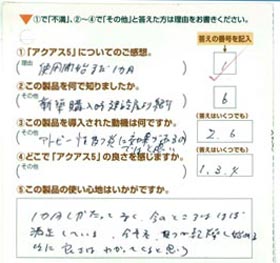 ①で「不満」、②～④で「その他」と答えた方は理由をお書きください。
答えの番号を記入
①「アクアス5」についてのご感想。
(理由 使用開始まだ1カ月 )
1
②この製品を何で知りましたか。
(その他 新築購入時 )
6
③この製品を導入された動機は何ですか。
(答えはいくつでも)
(その他 アトピー )
2.6
④どこで「アクアス5」の良さを感じますか。
(答えはいくつでも)
(その他 )
1.3.4
⑤この製品の使い心地はいかがですか。
1カ月しかたって
満足している。
良さはわかってくると思う